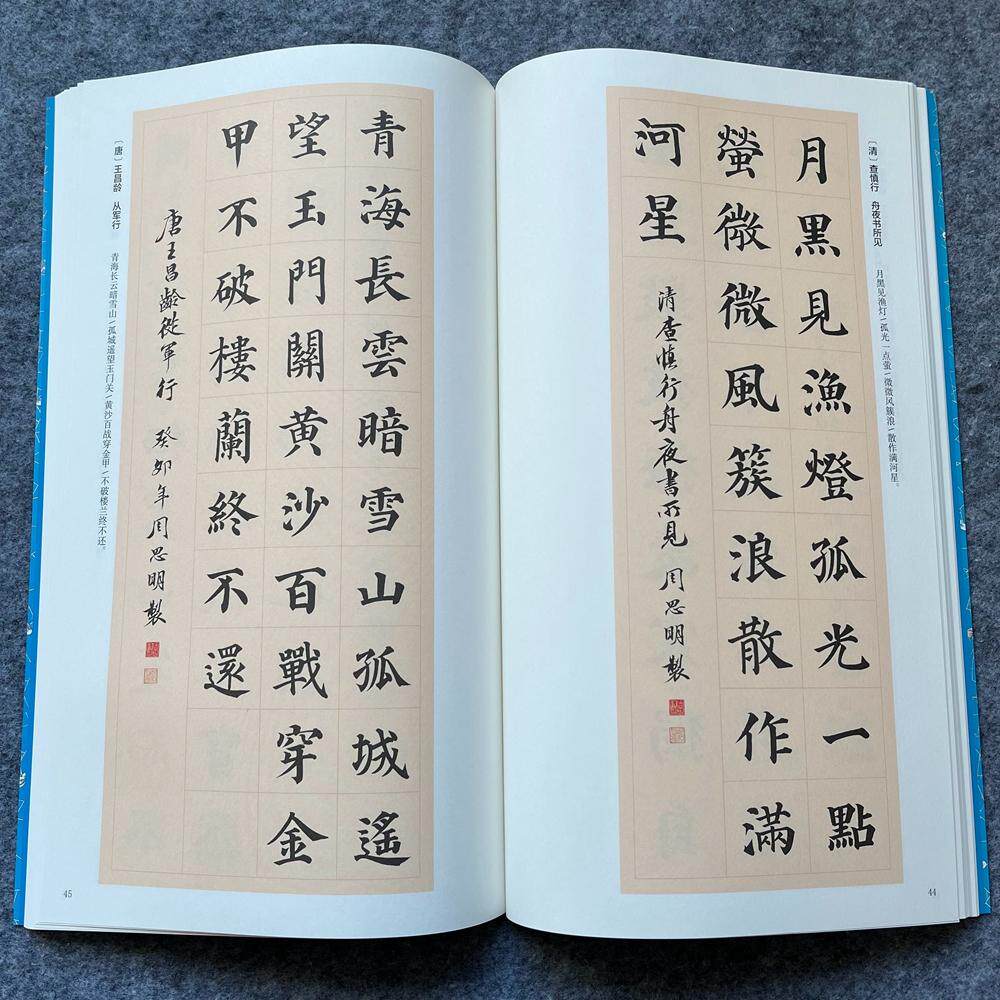 〔清〕查慎行　舟夜书所见
月黑见渔灯/孤光一点萤/微微风簇浪/散作满河星。
月黑見漁燈孤光一點
螢微微風簇浪散作滿
河星
清查慎行舟夜書所見　周思明製
44
青海長雲暗雪山孤城遙
望玉門關黃沙百戰穿金
甲不破樓蘭終不還
唐王昌齡從軍行　癸卯年周思明製
〔唐〕王昌龄　从军行
青海长云暗雪山/孤城遥望玉门关/黄沙百战穿金甲/不破楼兰终不还。
45